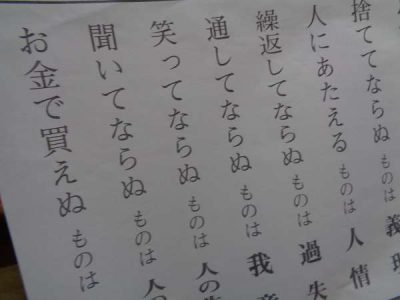 捨ててならぬ ものは 義理
人にあたえる ものは 人情
繰返してならぬ ものは 過失
通してならぬ ものは 我意
笑ってならぬ ものは 人の
聞いてならぬ ものは 人の
お金で買えぬ ものは